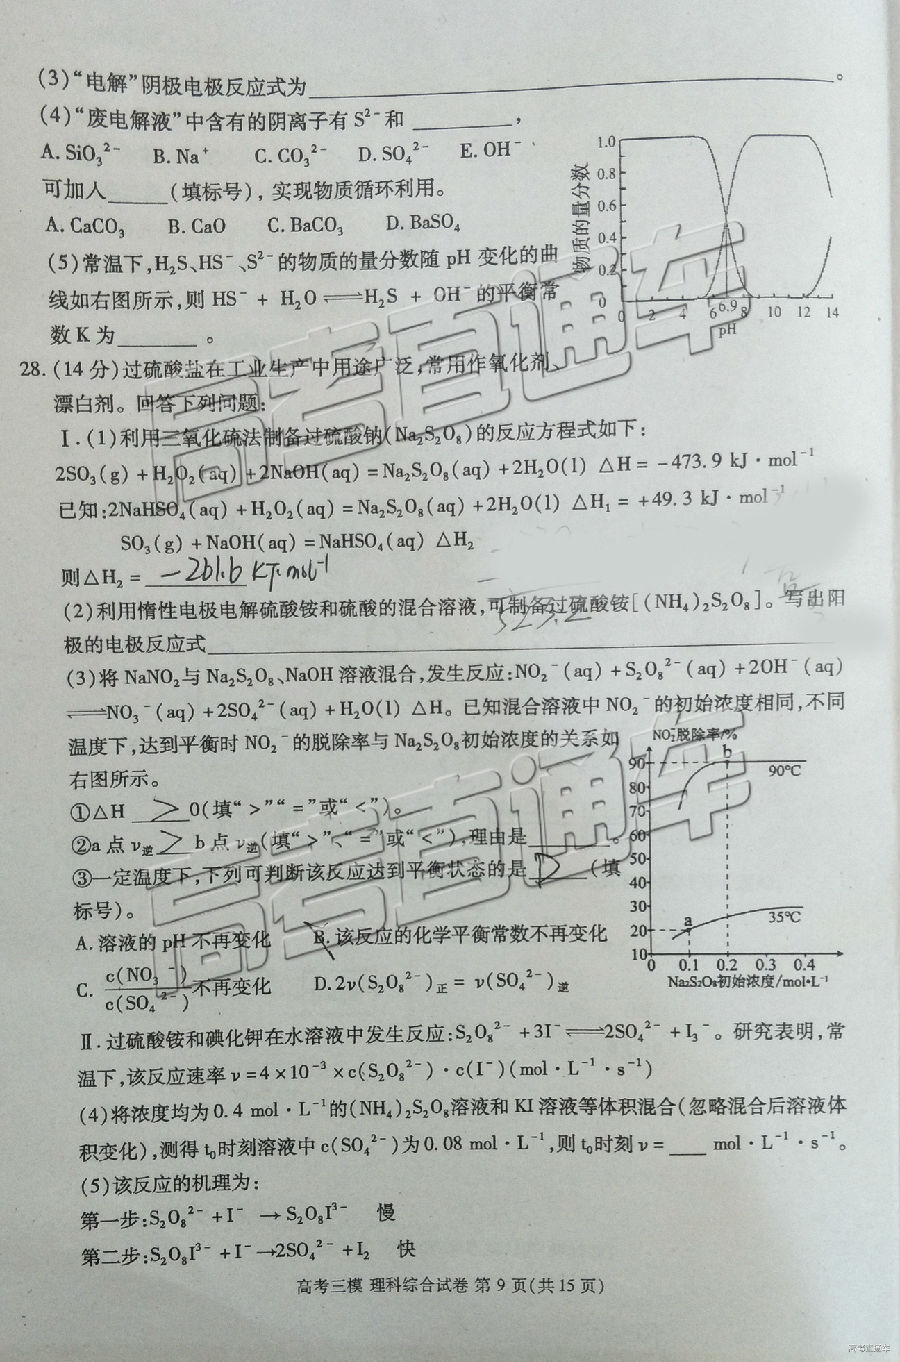 (3)“电解”阴极电极反应式为____________。
(4)“废电解液”中含有的阴离子有 S²⁻和 ________,
A. SiO₃²⁻ B. Na⁺ C. CO₃²⁻ D. SO₄²⁻ E. OH⁻
可加入_____(填标号),实现物质循环利用。
A. CaCO₃ B. CaO C. BaCO₃ D. BaSO₄
(5)常温下,H₂S、HS⁻、S²⁻的物质的量分数随 pH 变化的曲
线如右图所示,则 HS⁻ + H₂O ⇌ H₂S + OH⁻的平衡常
数 K 为_______。
物质的量分数
1.0
0.8
0.6
0.4
0.2
0
0 2 4 6 6.9 8 10 12 14
pH
28. (14 分)过硫酸盐在工业生产中用途广泛,常用作氧化剂、
漂白剂。回答下列问题:
Ⅰ. (1)利用三氧化硫法制备过硫酸钠(Na₂S₂O₈)的反应方程式如下:
2SO₃(g) + H₂O₂(aq) + 2NaOH(aq) = Na₂S₂O₈(aq) + 2H₂O(l) △H = -473.9 kJ·mol⁻¹
已知:2NaHSO₄(aq) + H₂O₂(aq) = Na₂S₂O₈(aq) + 2H₂O(l) △H₁ = +49.3 kJ·mol⁻¹
SO₃(g) + NaOH(aq) = NaHSO₄(aq) △H₂
则△H₂ = -261.6 KJ·mol⁻¹
(2)利用惰性电极电解硫酸铵和硫酸的混合溶液,可制备过硫酸铵[(NH₄)₂S₂O₈]。写出阳
523.2
极的电极反应式____________
(3)将 NaNO₂与 Na₂S₂O₈、NaOH 溶液混合,发生反应:NO₂⁻(aq) + S₂O₈²⁻(aq) + 2OH⁻(aq)
⇌NO₃⁻(aq) + 2SO₄²⁻(aq) + H₂O(l) △H。已知混合溶液中 NO₂⁻的初始浓度相同,不同
温度下,达到平衡时 NO₂⁻的脱除率与 Na₂S₂O₈初始浓度的关系如
右图所示。
①△H > 0(填“>”“=”或“<”)。
②a 点 v逆 > b 点 v逆(填“>”、“=”或“<”),理由是_______。
③一定温度下,下列可判断该反应达到平衡状态的是 D (填
标号)。
A. 溶液的 pH 不再变化 B. 该反应的化学平衡常数不再变化
C. c(NO₃⁻)/c(SO₄²⁻)不再变化 D. 2v(S₂O₈²⁻)正 = v(SO₄²⁻)逆
NO₂⁻脱除率/%
90
80
70
60
50
40
30
20
10
b
90℃
a
35℃
0 0.1 0.2 0.3 0.4
Na₂S₂O₈初始浓度/mol·L⁻¹
Ⅱ. 过硫酸铵和碘化钾在水溶液中发生反应:S₂O₈²⁻ + 3I⁻ ⇌ 2SO₄²⁻ + I₃⁻。研究表明,常
温下,该反应速率 v = 4×10⁻³×c(S₂O₈²⁻)·c(I⁻)(mol·L⁻¹·s⁻¹)
(4)将浓度均为 0.4 mol·L⁻¹的(NH₄)₂S₂O₈溶液和 KI 溶液等体积混合(忽略混合后溶液体
积变化),测得 t₀时刻溶液中 c(SO₄²⁻)为 0.08 mol·L⁻¹,则 t₀时刻 v = ___ mol·L⁻¹·s⁻¹。
(5)该反应的机理为:
第一步:S₂O₈²⁻ + I⁻ → S₂O₈I³⁻ 慢
第二步:S₂O₈I³⁻ + I⁻→2SO₄²⁻ + I₂ 快
高考三模 理科综合试卷 第 9 页(共 15 页)
高考直通车
高考直通车
高考直通车